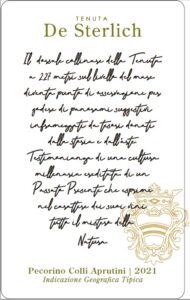 TENUTA
De Sterlich
Il dorsale collinare della Tenuta
a 227 metri sul livello del mare
diventa punto di osservazione per
godere di panorami suggestivi
infiammeggiati da tesori donati
dalla storia e dall'arte
Testimonianza di una cultura
millenaria ereditata di un
Passato Presente che esprime
nel carattere dei suoi vini
tutto il mistero della
Natura
Pecorino Colli Aprutini | 2021
Indicazione Geografica Tipica